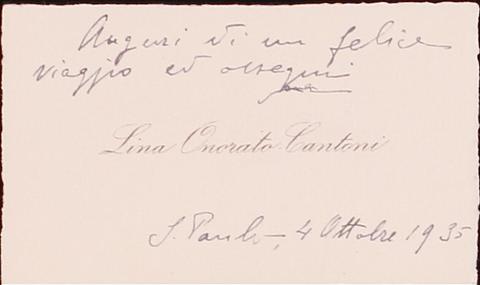 Auguri di un felice
viaggio ed ossequi
Lina Onorato-Cantoni
S. Paulo-, 4 Ottobre 1935